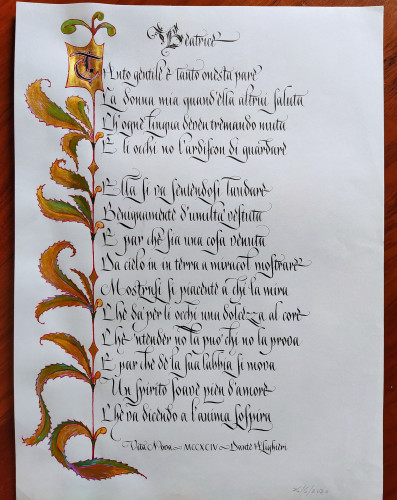 Beatrice
Tanto gentile è tanto onesta pare
La donna mia quand'ella altrui saluta
Ch'ogne lingua deven tremando muta
E li occhi no l'ardiscon di guardare
Ella si va sentendosi laudare
Benignamente d'umiltà vestuta
E par che sia una cosa venuta
Da cielo in in terra a miracol mostrare
Mostrasi sì piacente a chi la mira
Che dà per li occhi una dolcezza al core
Che 'ntender no la può chi no la prova
E par che de la sua labbia si mova
Un spirito soave pien d'amore
Che va dicendo a l'anima sospira
Vita Nova ~ MCCXCIV ~ Dante Alighieri